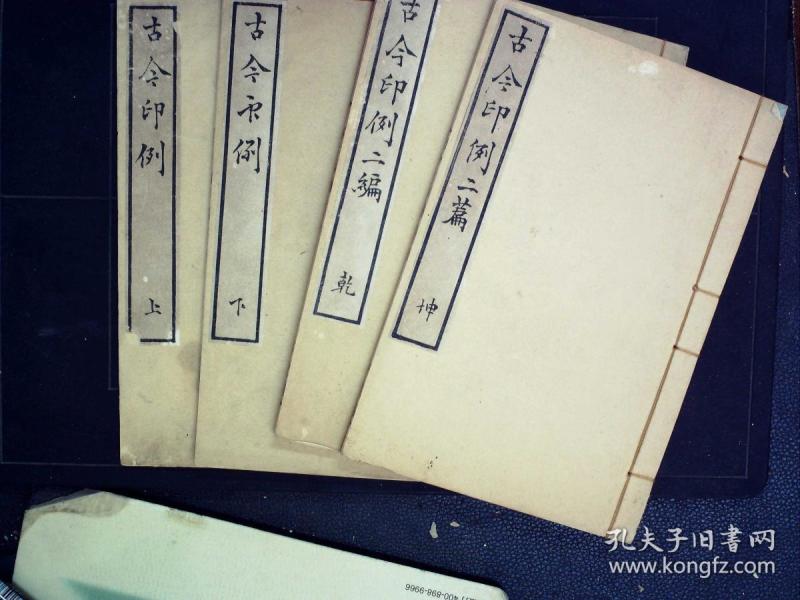 古今印例
上
古今印例
下
古今印例二編
乾
古今印例二篇
坤
400-898-9966
孔夫子旧书网
www.kongfz.com